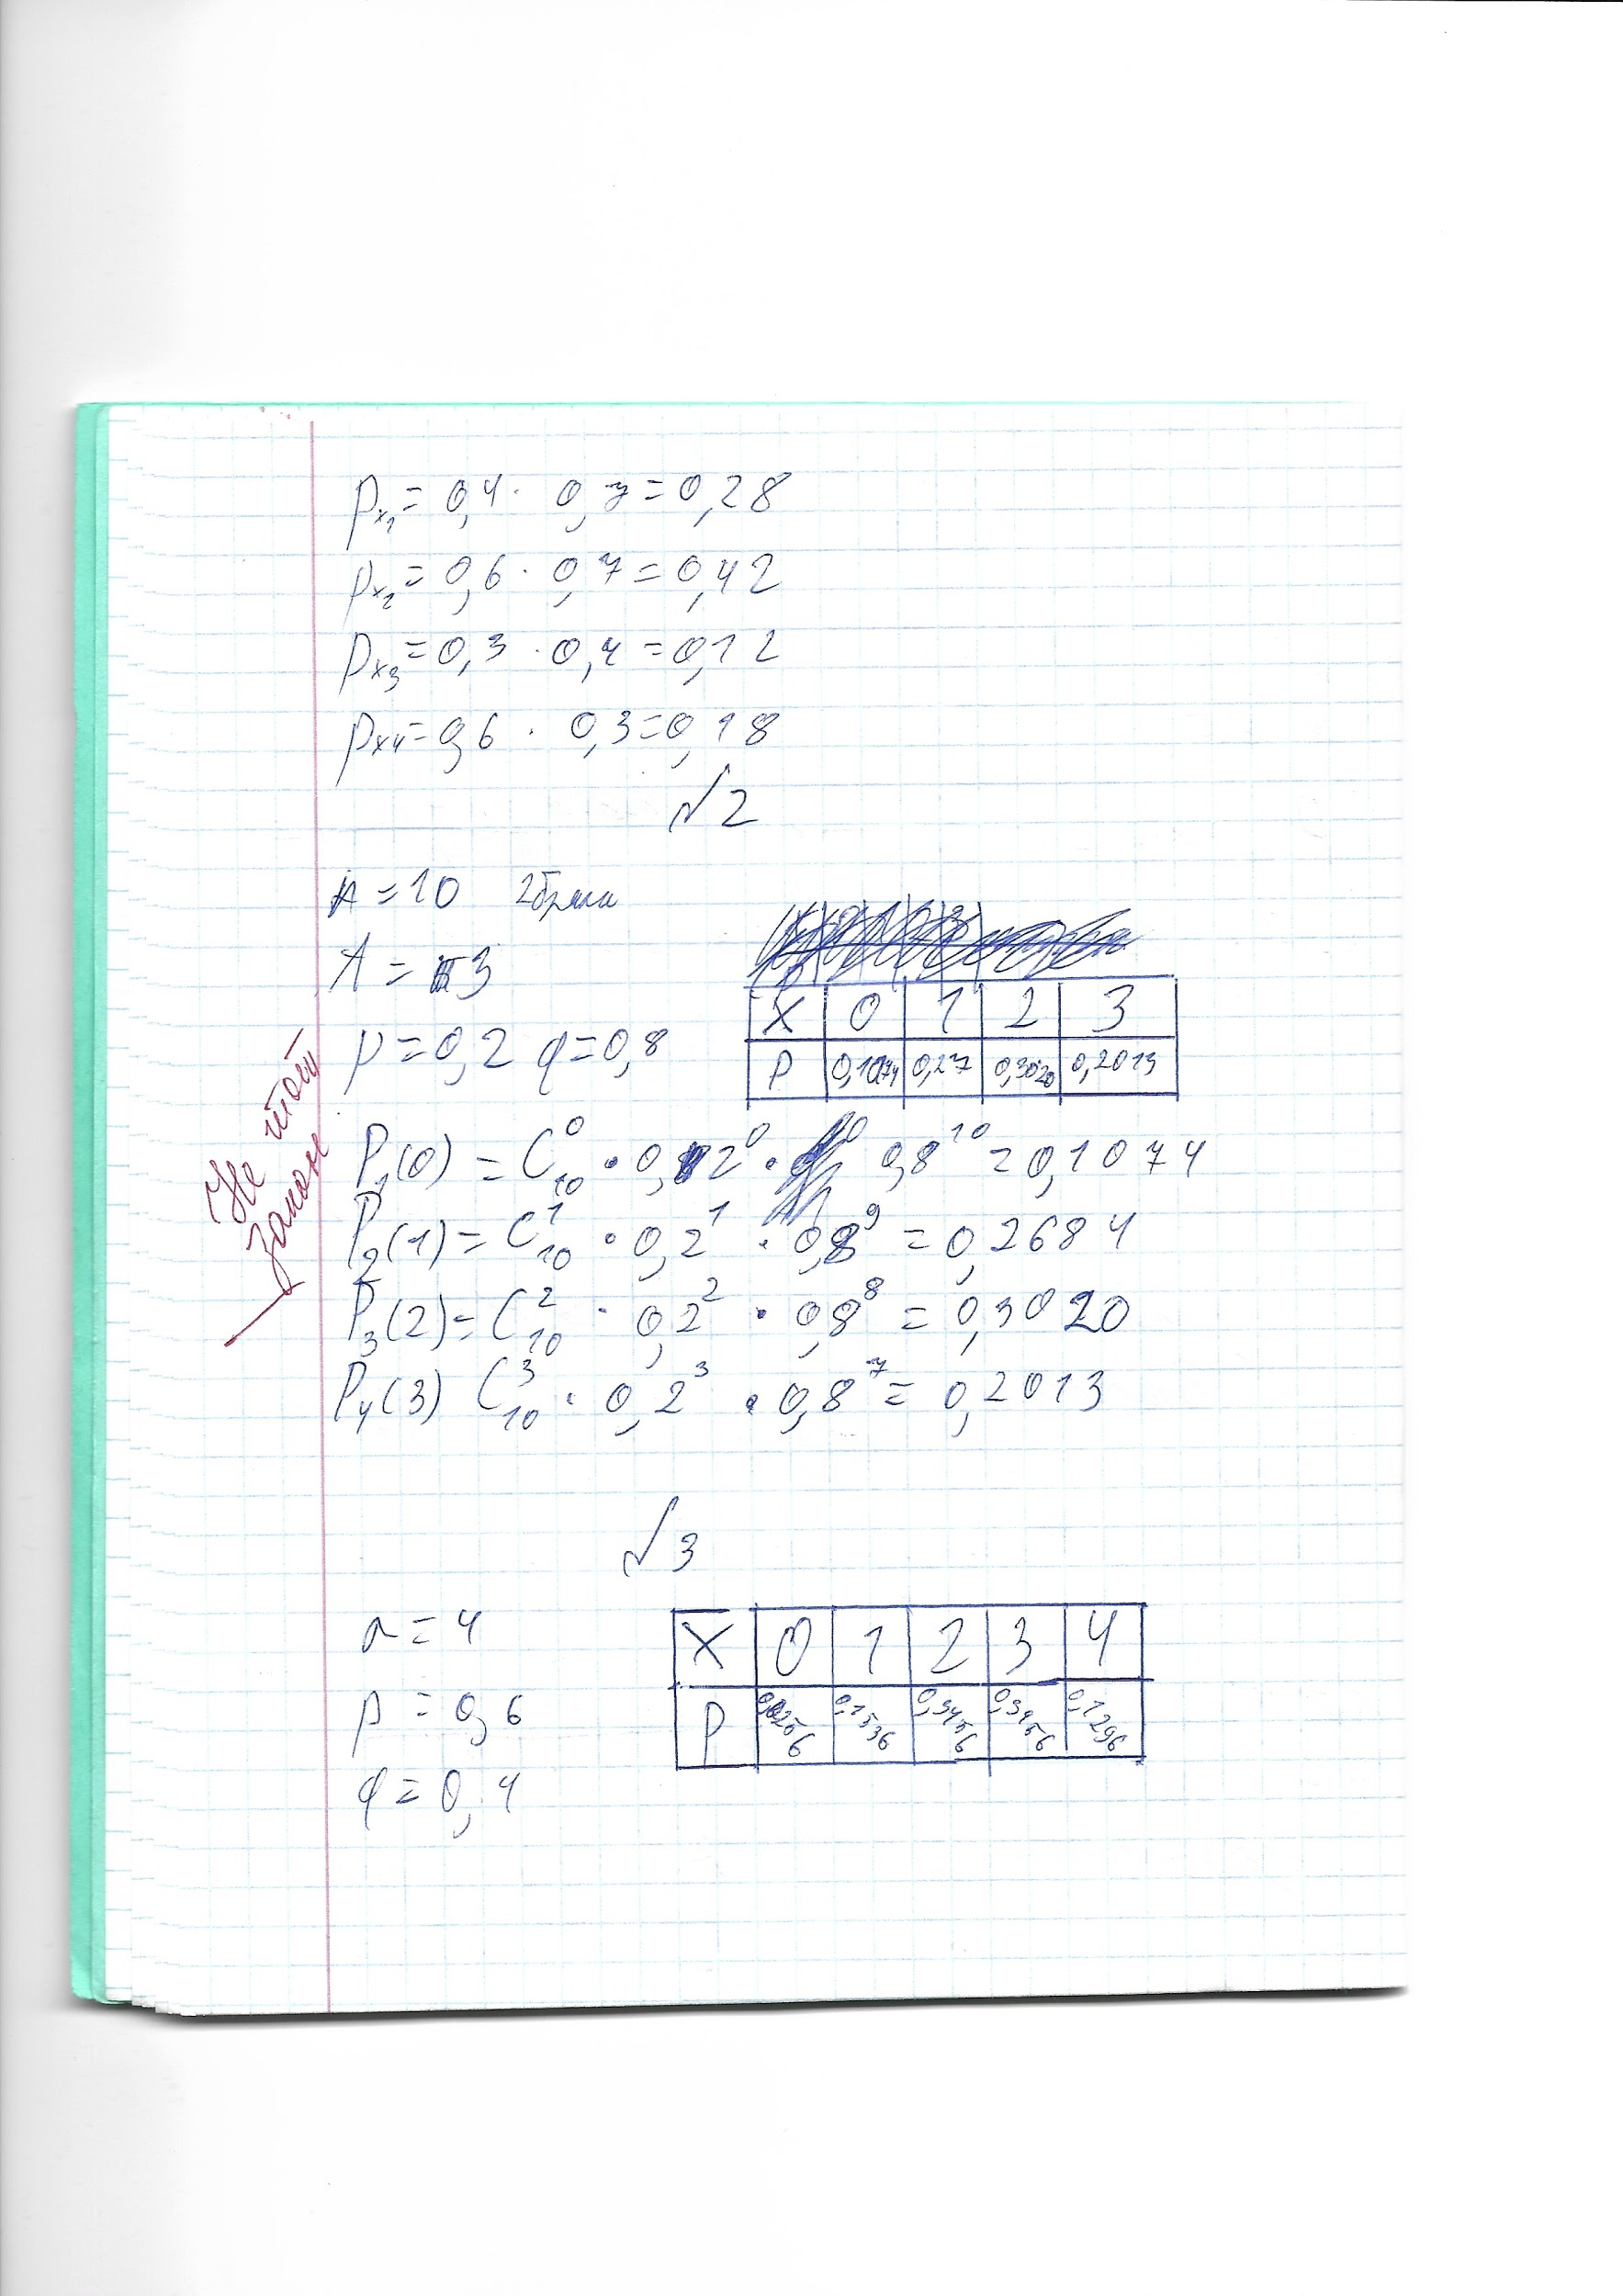 Px₁ = 0,4 · 0,7 = 0,28
Px₂ = 0,6 · 0,7 = 0,42
Px₃ = 0,3 · 0,4 = 0,12
Px₄ = 0,6 · 0,3 = 0,18
№2
n = 10 2 брака
A = 3
p = 0,2 q = 0,8
X 0 1 2 3
P 0,1074 0,27 0,3020 0,2013
Не тот
закон
P₁(0) = C₁₀⁰ · 0,2⁰ · 0,8¹⁰ = 0,1074
P₂(1) = C₁₀¹ · 0,2¹ · 0,8⁹ = 0,2684
P₃(2) = C₁₀² · 0,2² · 0,8⁸ = 0,3020
P₄(3) C₁₀³ · 0,2³ · 0,8⁷ = 0,2013
№3
n = 4
p = 0,6
q = 0,4
X 0 1 2 3 4
P 0,0256 0,1536 0,3456 0,3456 0,1296